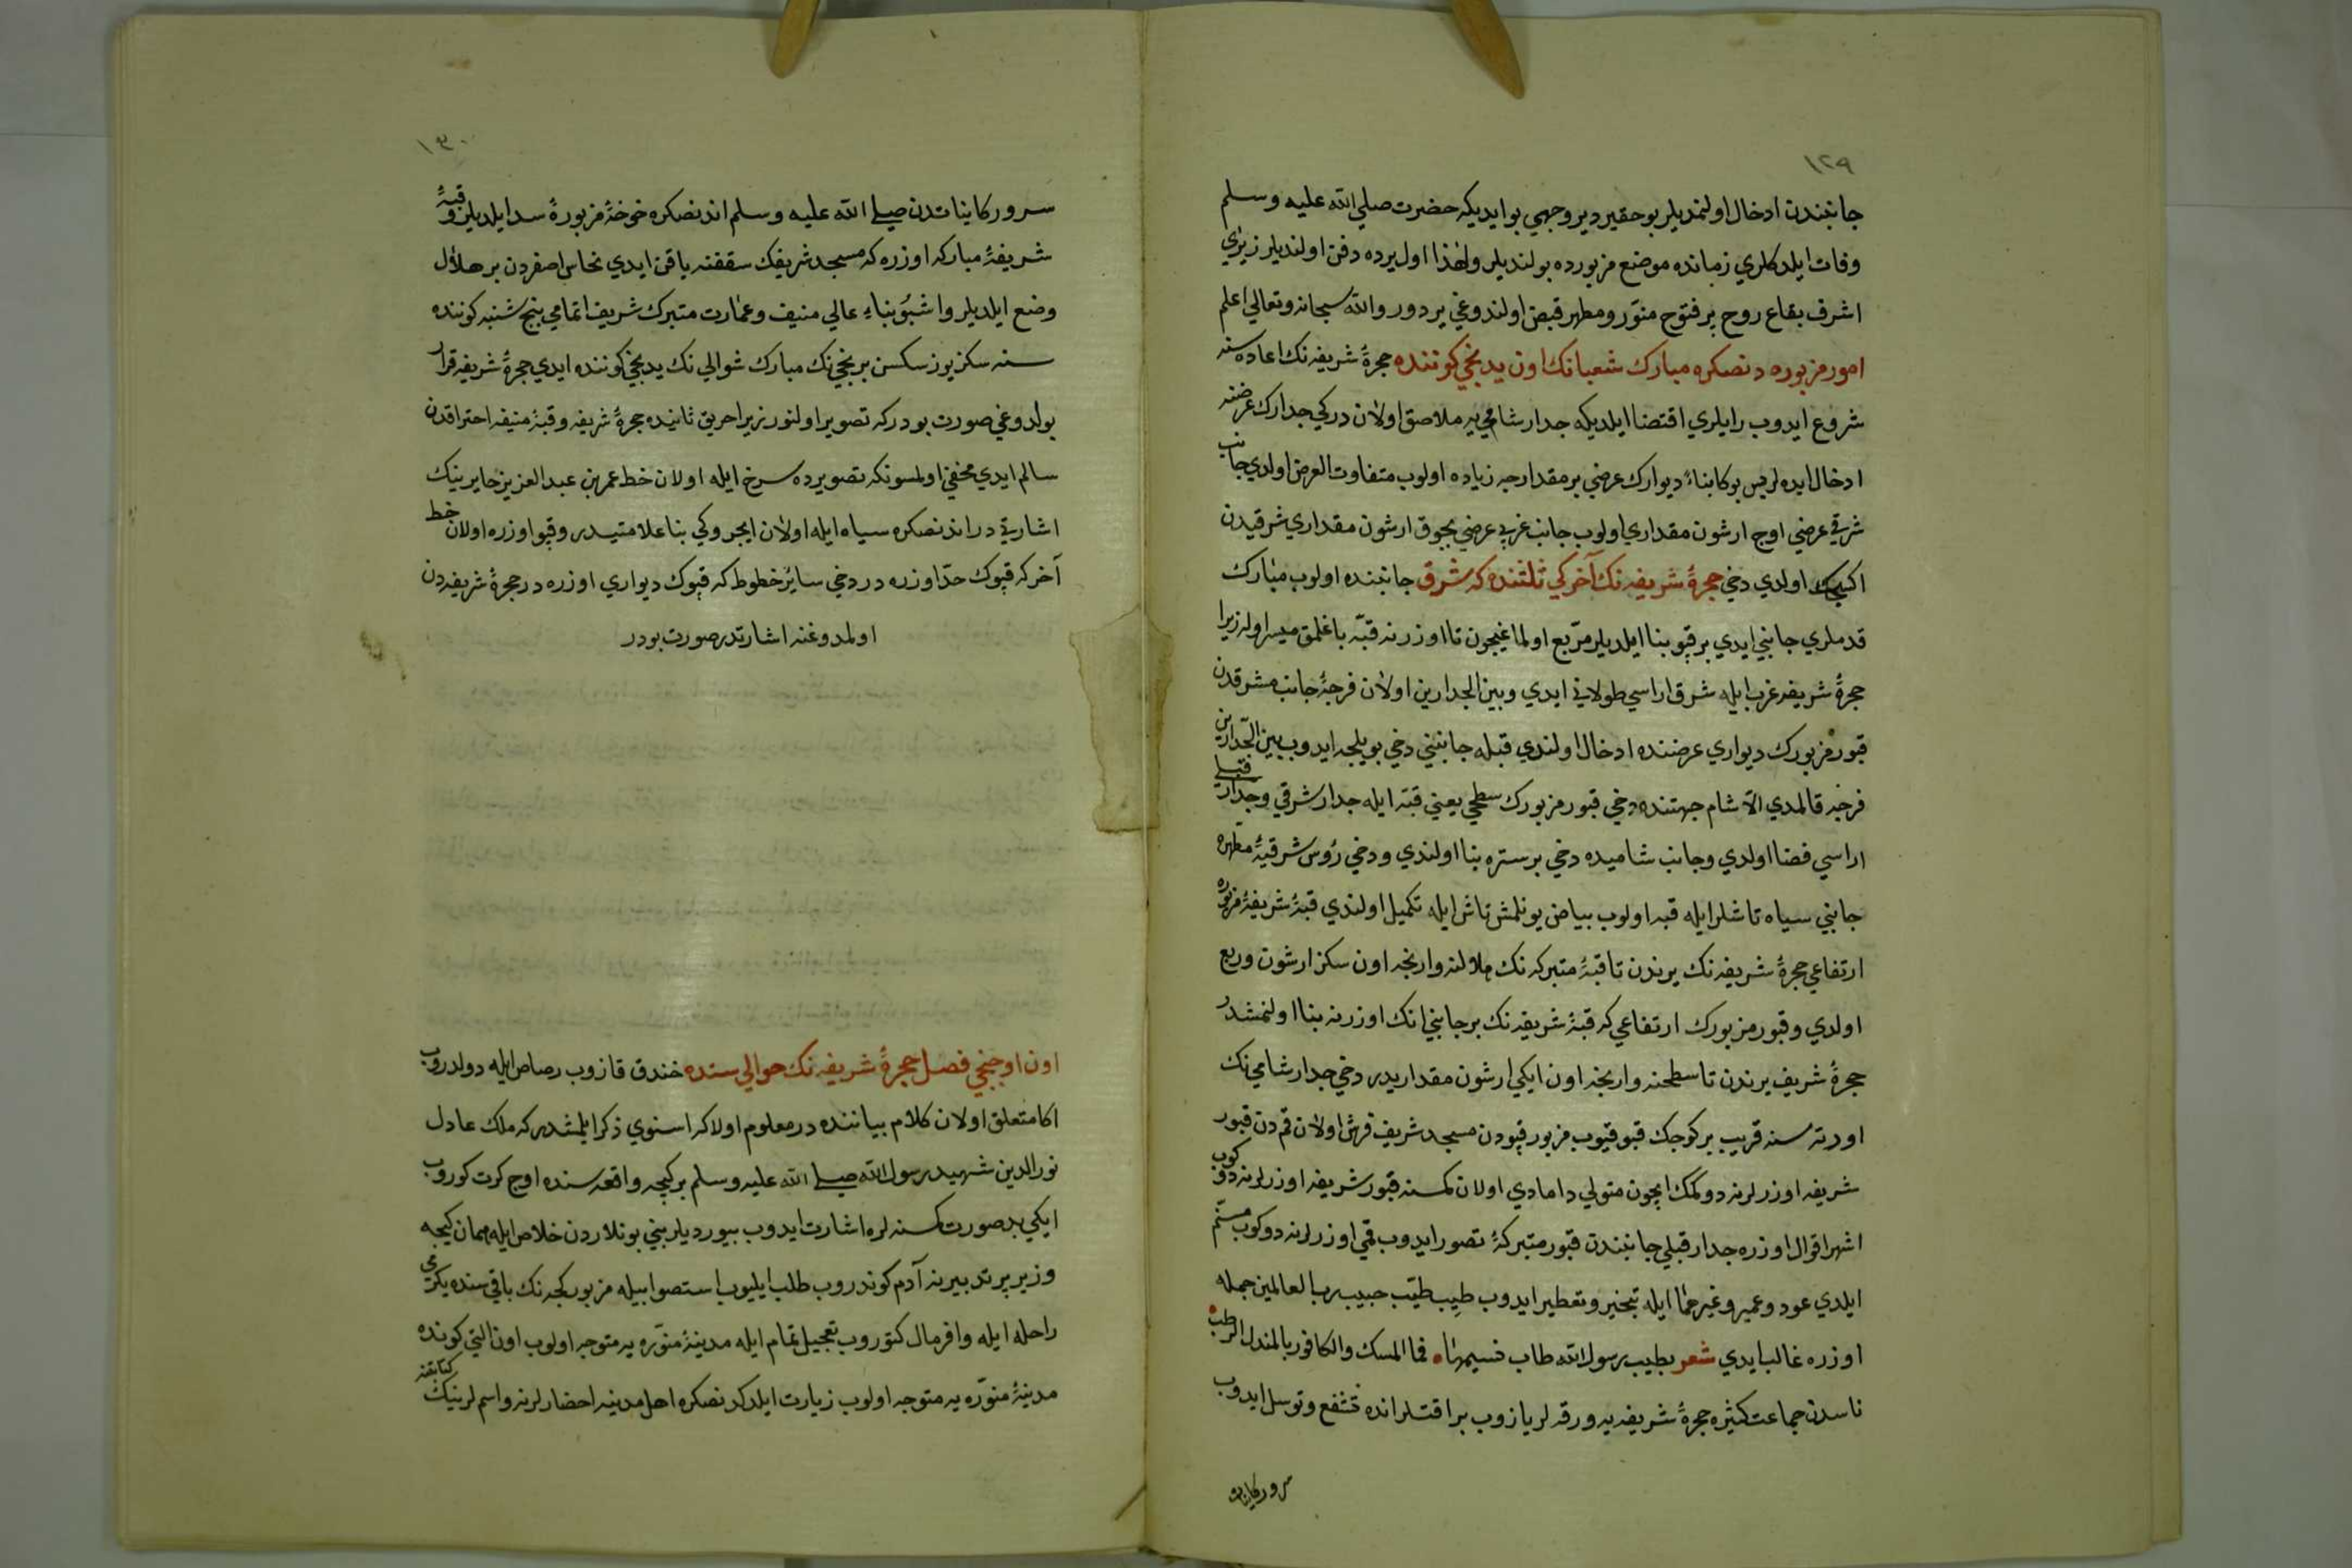 ١٢٩
جانبندن ادخال اولنمديلر بو حقير دير وجهي بو ايديكه حضرت صلي الله عليه وسلم
وفات ايلدكلري زمانده موضع مزبورده بولنديلر ولهذا اول يرده دفن اولنديلر زيرا يري
اشرف بقاع روح پر فتوح منوّر ومطهر قبض اولندوغي يردور والله سبحانه وتعالي اعلم
امور مزبوره دنصكره مبارك شعبانك اون يدنجي كوننده حجرۀ شريفه نك اعاده سنه
شروع ايدوب رايلري اقتضا ايلديكه جدار شامي يه ملاصق اولان دركي جدارك عرضنه
ادخال ايده لر پس بوكا بناءً ديوارك عرضي بر مقدارجه زياده اولوب متفاوت العرض اولدي جانب
شرقي عرضي اوچ ارشون مقداري اولوب جانب غربي عرضي بچوق ارشون مقداري شرقيدن
اكسك اولدي دخي حجرۀ شريفه نك آخركي ثلثنده كه شرق جانبنده اولوب مبارك
قدملري جانبي ايدي بر قبو بنا ايلديلر مرّبع اولماغيچون تا اوزرنه قبّه باغلمق ميسر اوله زيرا
حجرۀ شريفه غرب ايله شرق اراسي طولاني ايدي وبين الجدارين اولان فرجۀ جانب مشرقدن
قبور مزبورك ديواري عرضنده ادخال اولندي قبله جانبني دخي بويلجه ايدوب بين الجدارين
فرجه قالمدي الّا شام جهتنده دخي قبور مزبورك سطحي يعني قبّه ايله جدار شرقي وجدار قبلي
اراسي فضا اولدي وجانب شاميده دخي بر ستره بنا اولندي ودخي رؤس شرقيۀ مطهره
جانبي سياه تاشلر ايله قبه اولوب بياض يونلمش تاش ايله تكميل اولندي قبۀ شريفۀ مزبوره
ارتفاعي حجرۀ شريفه نك يرندن تا قبۀ متبركه نك هلالنه وارنجه اون سكز ارشون وربع
اولدي وقبور مزبورك ارتفاعي كه قبۀ شريفه نك بر جانبي انك اوزرنه بنا اولنمشدر
حجرۀ شريف يرندن تا سطحنه وارنجه اون ايكي ارشون مقداريدر دخي جدار شامي نك
اورته سنه قريب بر كوچك قبو قيوب مزبور قپودن مسجد شريف فرش اولان قمدن قبور
شريفه اوزرلرينه دوكمك ايچون متولي دامادي اولان كمسنه قبور شريفه اوزرلرينه دوكوب
اشهر اقوال اوزره جدار قبلي جانبندن قبور متبركۀ تصور ايدوب قمي اوزرلرينه دوكوب مسنّم
ايلدي عود وعمبر وغيرهما ايله تبخير وتعطير ايدوب طيب طيّب حبيب رب العالمين جمله
اوزره غالب ايدي شعر بطيب رسول الله طاب نسيمها فما المسك والكافور بالمندل الرطب
ناسدن جماعت كثيره حجرۀ شريفه يه ورقه لر يازوب براقتلر انده تشفع وتوسل ايدوب
سرور كاينات
١٣٠
سرور كايناتدن صلي الله عليه وسلم اندنصكره خوخۀ مزبورۀ سد ايلديلر وقبۀ
شريفۀ مباركه اوزره كه مسجد شريفك سقفنه ياقن ايدي نحاس اصفردن بر هلال
وضع ايلديلر واشبو بناء عالي منيف وعمارت متبرك شريف اتمامي پنج شنبه كوننده
سنه سكز يوز سكسن برنجي نك مبارك شوالي نك يدنجي كوننده ايدي حجرۀ شريفه قرار
بولدوغي صورت بودركه تصوير اولنور زيرا حريق ثانيده حجرۀ شريفه وقبۀ منيفه احتراقدن
سالم ايدي مخفي اولمسونكه تصويرده سرخ ايله اولان خط عمر بن عبد العزيز حايرينك
اشارتي در اندنصكره سياه ايله اولان ايچروكي بنا علامتيدر وقپو اوزره اولان خط
آخر كه قپوك حدّ اوزره در دخي ساير خطوط كه قپوك ديواري اوزره در حجرۀ شريفه دن
اولمدوغنه اشارتدر صورت بودر
اون اوچنجي فصل حجرۀ شريفه نك حوالي سنده خندق قازوب رصاص ايله دولدروب
اكا متعلق اولان كلام بياننده در معلوم اولا كه اسنوي ذكر ايلمشدر كه ملك عادل
نورالدين شهيد رسول الله صلي الله عليه وسلم بر كيجه واقعه سنده اوچ كرت كوروب
ايكي بد صورت كسنه لره اشارت ايدوب بيورديلر بني بونلاردن خلاص ايله همان كيجه
وزير پر تدبيرينه آدم كوندروب طلب ايليوب استصوابيله مزبور كيجه نك باقي سنده يكرمي
راحله ايله وافر مال كتوروب تعجيل تمام ايله مدينۀ منوّره يه متوجه اولوب اون التي كونده
مدينۀ منوّره يه متوجه اولوب زيارت ايلدكدنصكره اهل مدينه احضار لرينه واسم لرينك كتابتنه